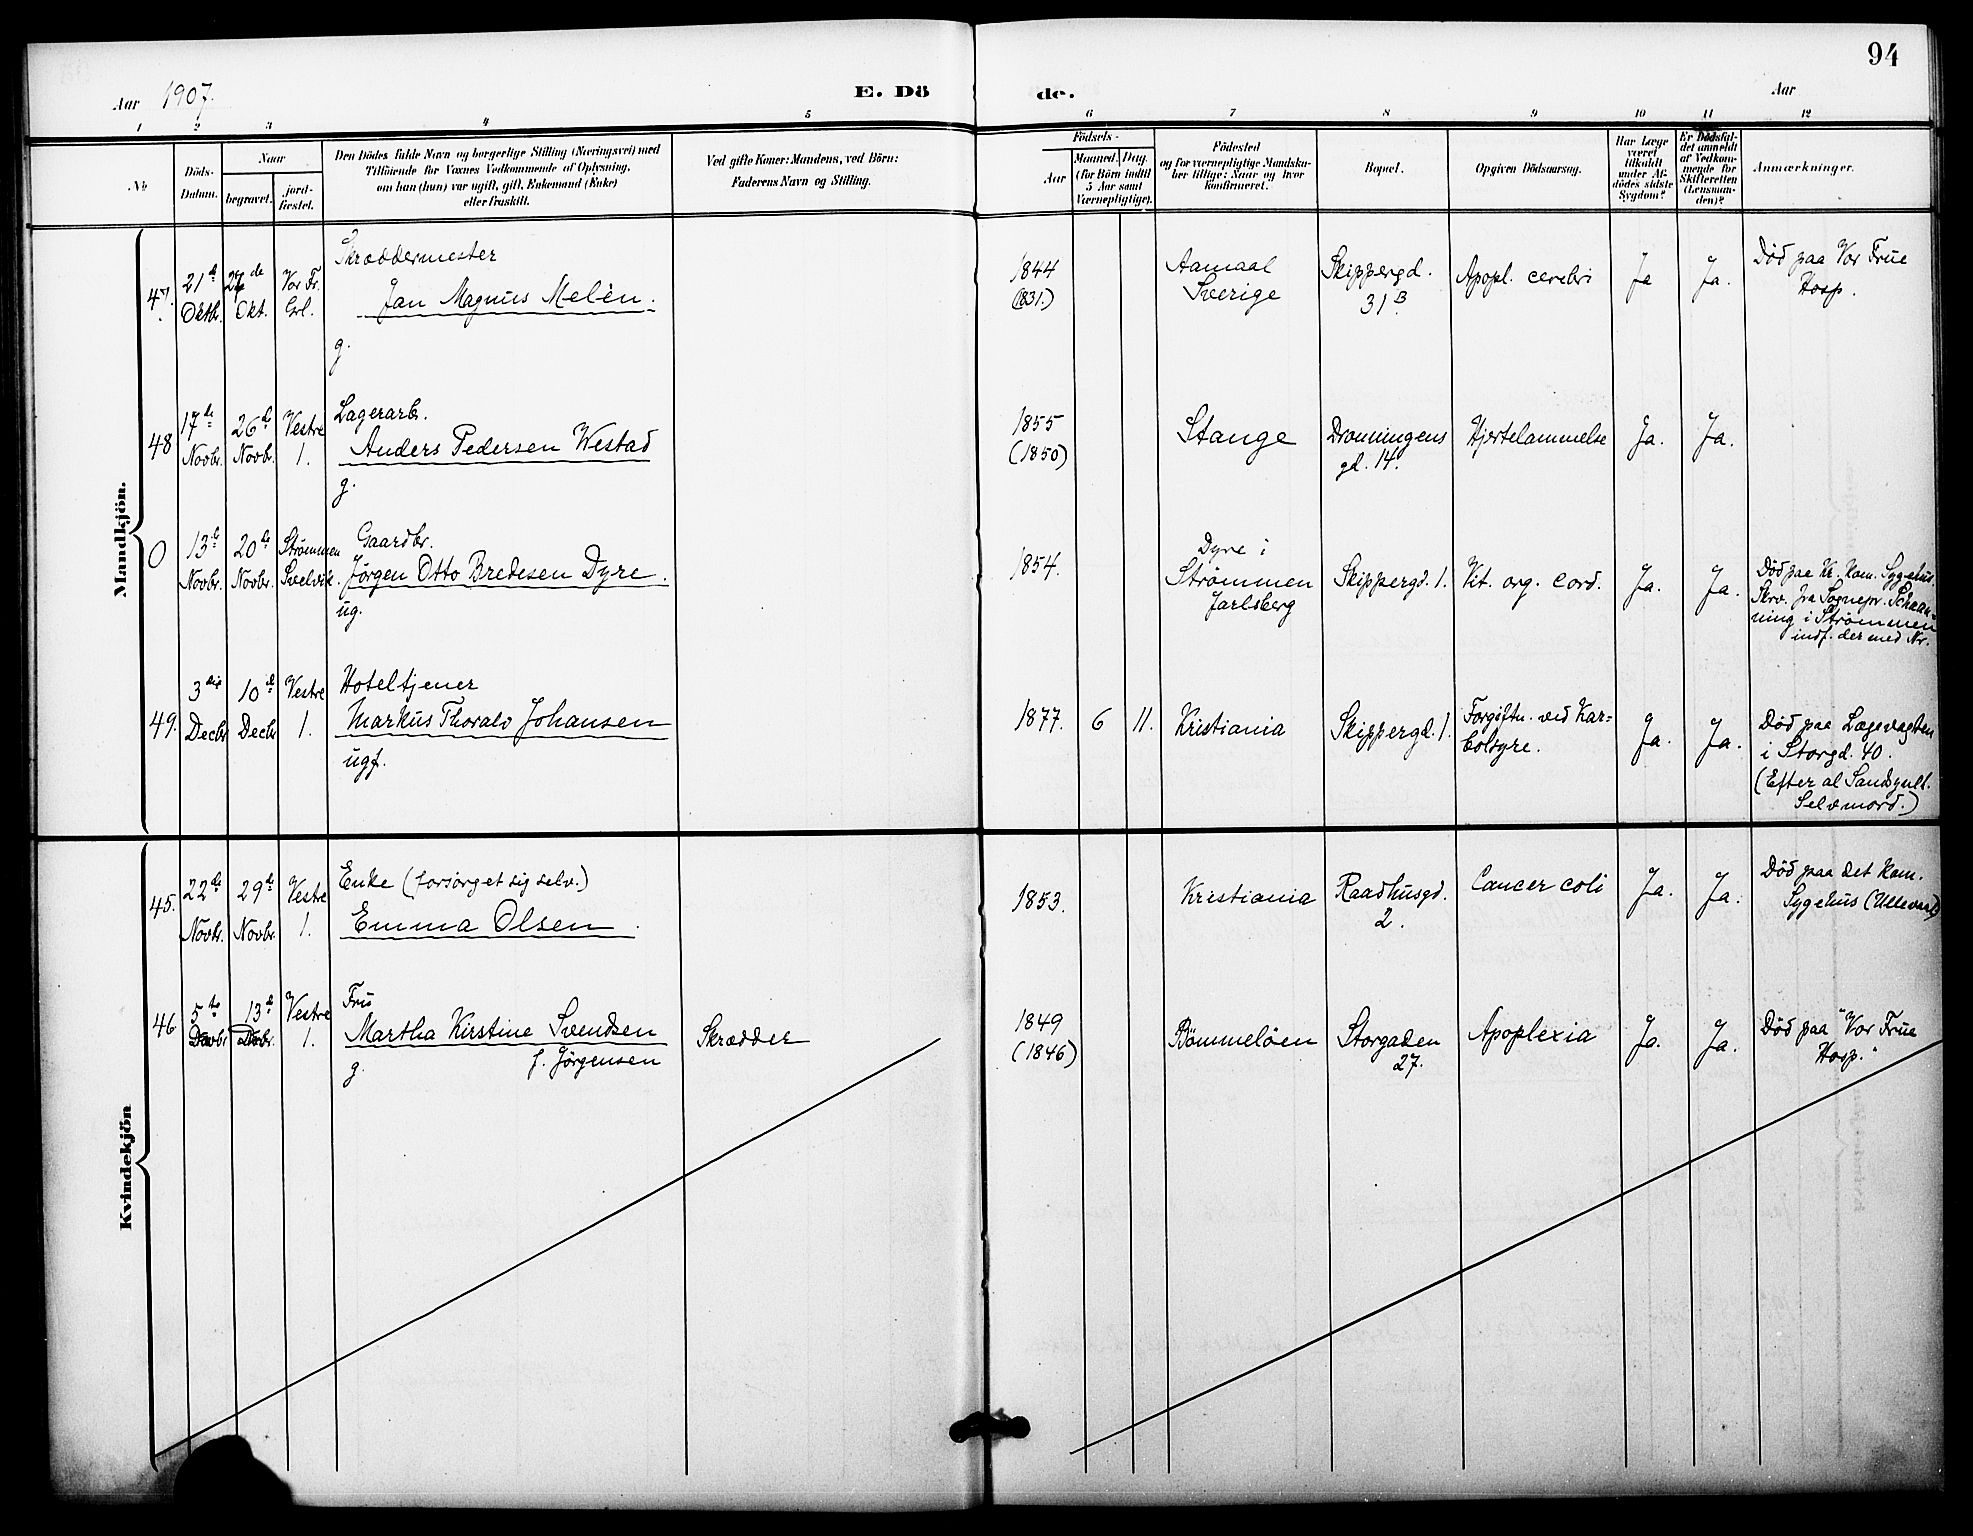 94
Aar 1907.
E. Dö
de.
Aar
1 2 3 4 5 6 7 8 9 10 11 12
No
Döds-
Datum.
Naar
begravet.
jord-
fæstet.
Den Dödes fulde Navn og borgerlige Stilling (Næringsvei) med
Tilföiende for Voxnes Vedkommende af Oplysning,
om han (hun) var ugift, gift, Enkemand (Enke)
eller fraskilt.
Ved gifte Koner: Mandens, ved Börn:
Faderens Navn og Stilling.
Födsels-
Aar
Maaned. Dag.
(for Börn indtil
5 Aar samt
Værnepligtige).
Födested
og for værnepligtige Mandska-
ber tillige: Naar og hvor
konfirmeret.
Bopæl.
Opgiven Dödsaarsag.
Har Læge
været
tilkaldt
under Af-
dödes sidste
Sygdom?
Er Dödsfal-
det anmeldt
af Vedkom-
mende for
Skifteretten
(Lensman-
den)?
Anmærkninger.
Mandkjön.
47.
21de
Oktbr.
24de
Okt.
Vor Fr.
Grl.
Skræddermester
Jan Magnus Melèn.
g.
1844
(1831.)
Aamaal
Sverige
Skippergd.
31B
Apopl. cerebri
Ja
Ja.
Död paa Vor Frue
Hosp.
48
17de
Novbr.
26de
Novbr.
Vestre
1.
Lagerarb.
Anders Pedersen Westad
g.
1855
(1850)
Stange
Dronningens
gd. 14.
Hjertelammelse
Ja.
Ja.
0
13de
Novbr.
20de
Novbr.
Strømmen
Svelvik.
Gaardbr.
Jörgen Otto Bredesen Dyre.
ug.
1854.
Dyre i
Strömmen
Jarlsberg
Skippergd. 1.
Vit. org. cord.
Ja.
Ja.
Död paa Kr. Kom. Sygehus.
Skrv. fra Sognepr. Schaan-
ning i Strömmen
indf. der med Nr.
49.
3die
Decbr
10de
Decbr
Vestre
1.
Hoteltjener
Markus Thoralv Johansen
ugf.
1877. 6 11.
Kristiania
Skippergd. 1.
Forgiftn. ved Kar-
bolsyre.
Ja.
Ja.
Död paa Lægevagten
i Storgd. 40.
(Efter al Sandsynl.
Selvmord.)
Kvindekjön
45.
22de
Novbr.
29de
Novbr.
Vestre
1.
Enke (forsörget sig selv.)
Emma Olsen.
1853.
Kristiania
Raadhusgd.
2.
Cancer coli
Ja.
Ja.
Död paa det Kom.
Sygehus (Ullevaal)
46
5te
13de
Vestre
1.
Fru
Martha Kirstine Svendsen
g. f. Jörgensen
Skrædder
1849
(1846)
Bömmelöen
Storgaden
27.
Apoplexia
Ja.
Ja.
Död paa "Vor Frue
Hosp."